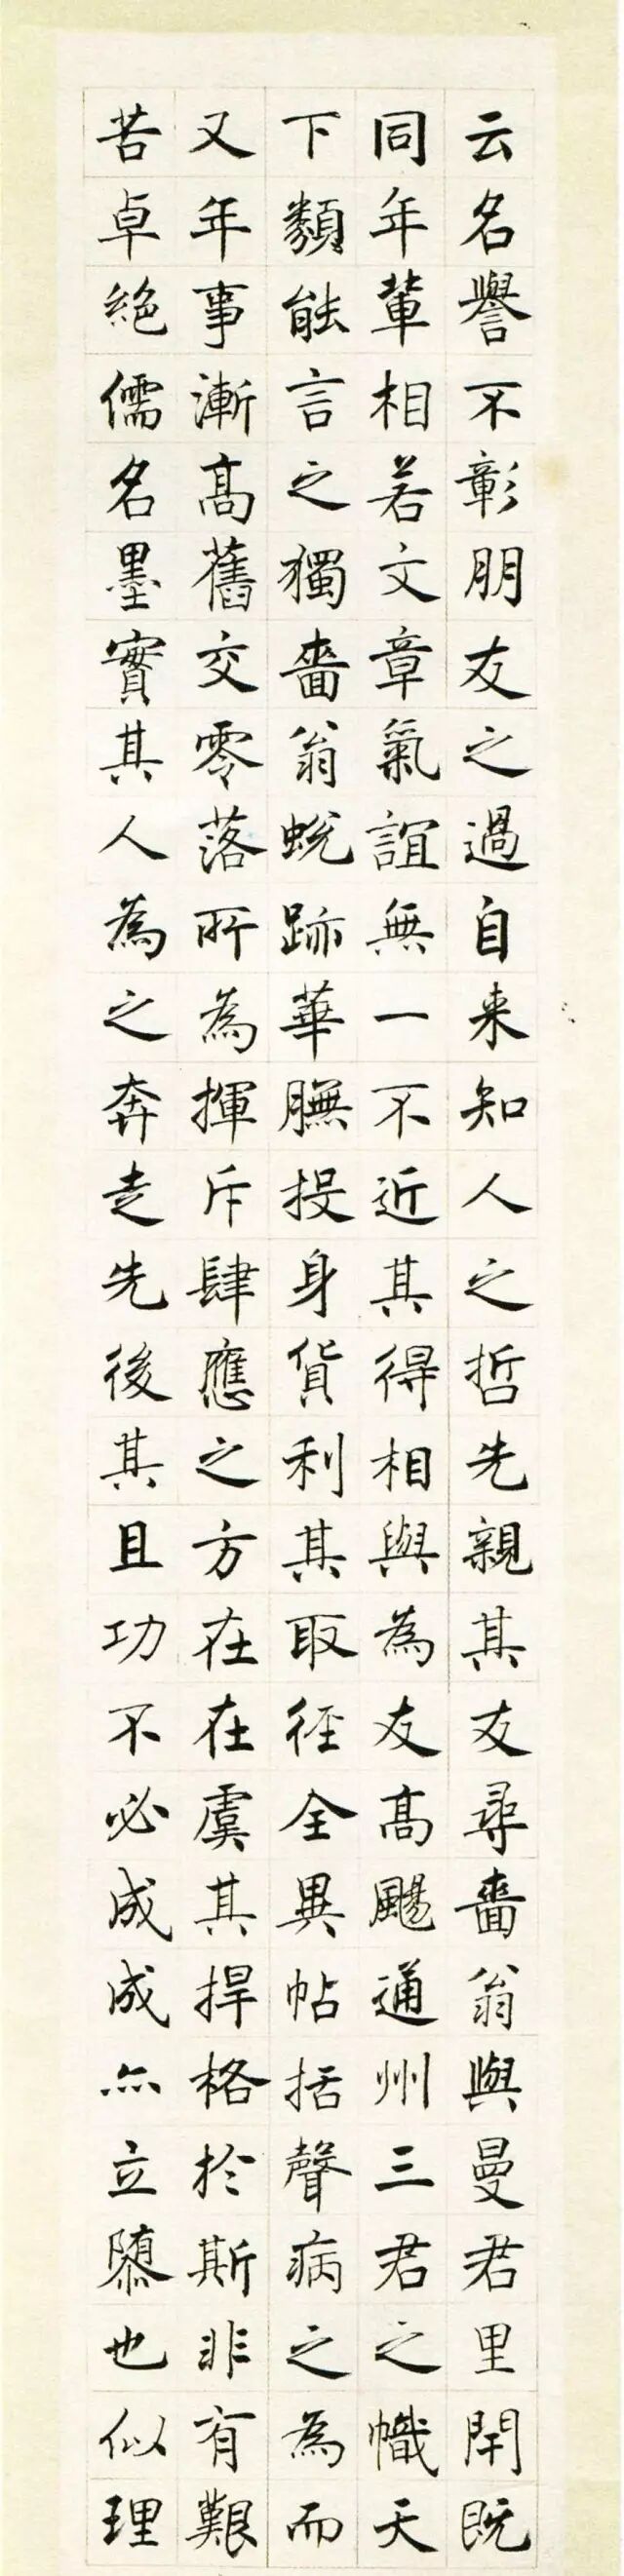 云名譽不彰朋友之過自来知人之哲先親其友尋嗇翁與曼君里閈既
同年輩相若文章氣誼無一不近其得相與為友髙颺通州三君之幟天
下類能言之獨嗇翁蛻跡華膴投身貨利其取徑全異帖括聲病之為而
又年事漸髙舊交零落所為揮斥肆應之方在在虞其捍格於斯非有艱
苦卓絶儒名墨實其人為之奔走先後其且功不必成成亦立隳也似理